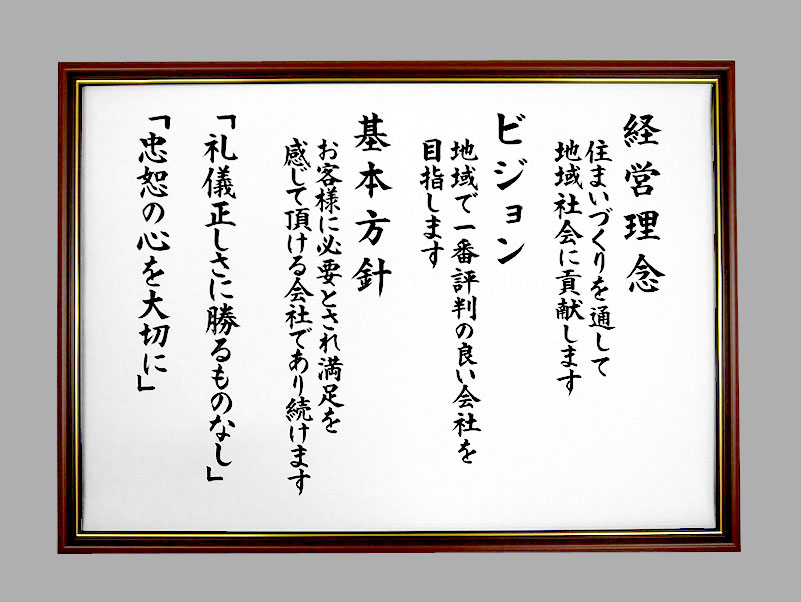 経営理念
住まいづくりを通して
地域社会に貢献します
ビジョン
地域で一番評判の良い会社を
目指します
基本方針
お客様に必要とされ満足を
感じて頂ける会社であり続けます
「礼儀正しさに勝るものなし」
「忠恕の心を大切に」